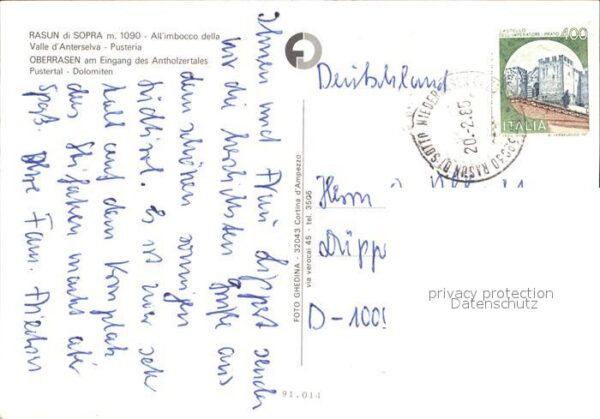 RASUN di SOPRA m. 1090 - All'imbocco della
Valle d'Anterselva - Pusteria
OBERRASEN am Eingang des Antholzertales
Pustertal - Dolomiten
Ihnen und Frau Lippert senden
wir die herzlichsten Grüße aus
dem schönen sonnigen
Südtirol. Es ist zwar sehr
kalt auf dem
das Skifahren macht aber
Spaß. Ihre Fam.
FOTO GHEDINA - 32043 Cortina d'Ampezzo
via verocai 45 - tel. 3595
91.014
CASTELLO
DELL'IMPERATORE - PRATO
400
ITALIA
RASUN DI SOTTO NIEDER
20.-2.85
Deutschland
Herrn
D-100
privacy protection
Datenschutz